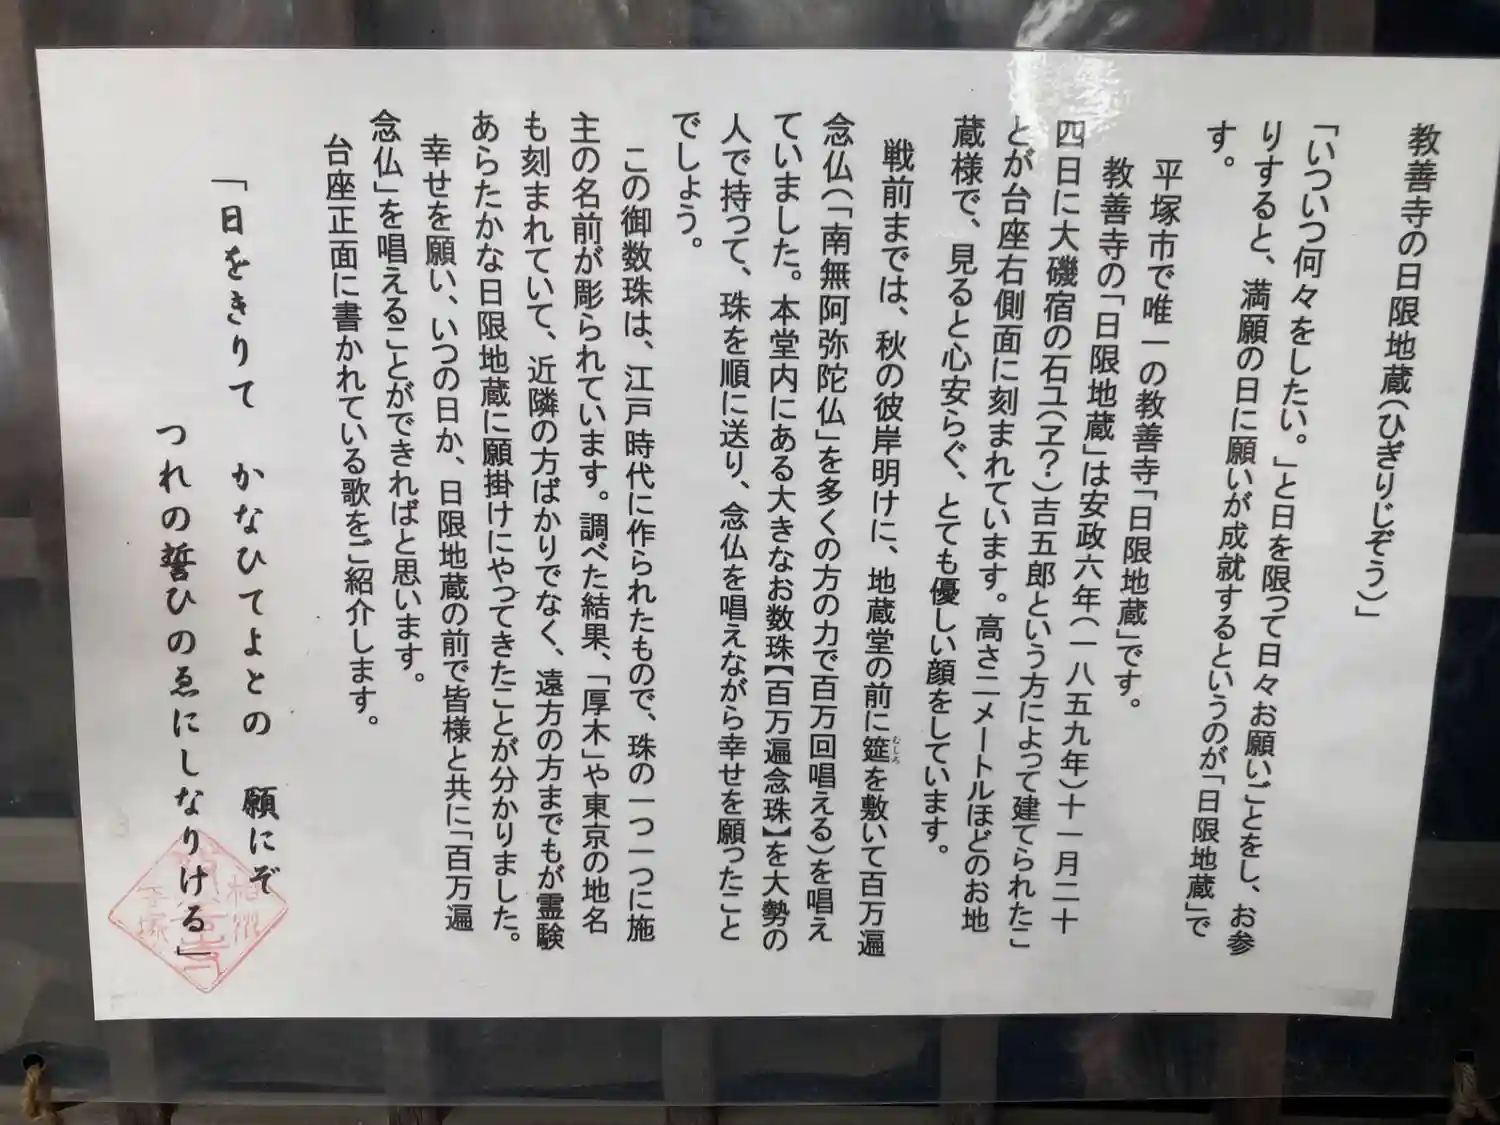 教善寺の日限地蔵(ひぎりじぞう)」
「いついつ何々をしたい。」と日を限って日々お願いごとをし、お参
りすると、満願の日に願いが成就するというのが「日限地蔵」で
す。
平塚市で唯一の教善寺「日限地蔵」です。
教善寺の「日限地蔵」は安政六年(一八五九年)十一月二十
四日に大磯宿の石ユ(ヱ?)吉五郎という方によって建てられたこ
とが台座右側面に刻まれています。高さ二メートルほどのお地
蔵様で、見ると心安らぐ、とても優しい顔をしています。
戦前までは、秋の彼岸明けに、地蔵堂の前に筵むしろを敷いて百万遍
念仏(「南無阿弥陀仏」を多くの方の力で百万回唱える)を唱え
ていました。本堂内にある大きなお数珠【百万遍念珠】を大勢の
人で持って、珠を順に送り、念仏を唱えながら幸せを願ったこと
でしょう。
この御数珠は、江戸時代に作られたもので、珠の一つ一つに施
主の名前が彫られています。調べた結果、「厚木」や東京の地名
も刻まれていて、近隣の方ばかりでなく、遠方の方までもが霊験
あらたかな日限地蔵に願掛けにやってきたことが分かりました。
幸せを願い、いつの日か、日限地蔵の前で皆様と共に「百万遍
念仏」を唱えることができればと思います。
台座正面に書かれている歌をご紹介します。
「日をきりて かなひてよとの 願にぞ
つれの誓ひのゑにしなりける」
相州
教善寺
平塚